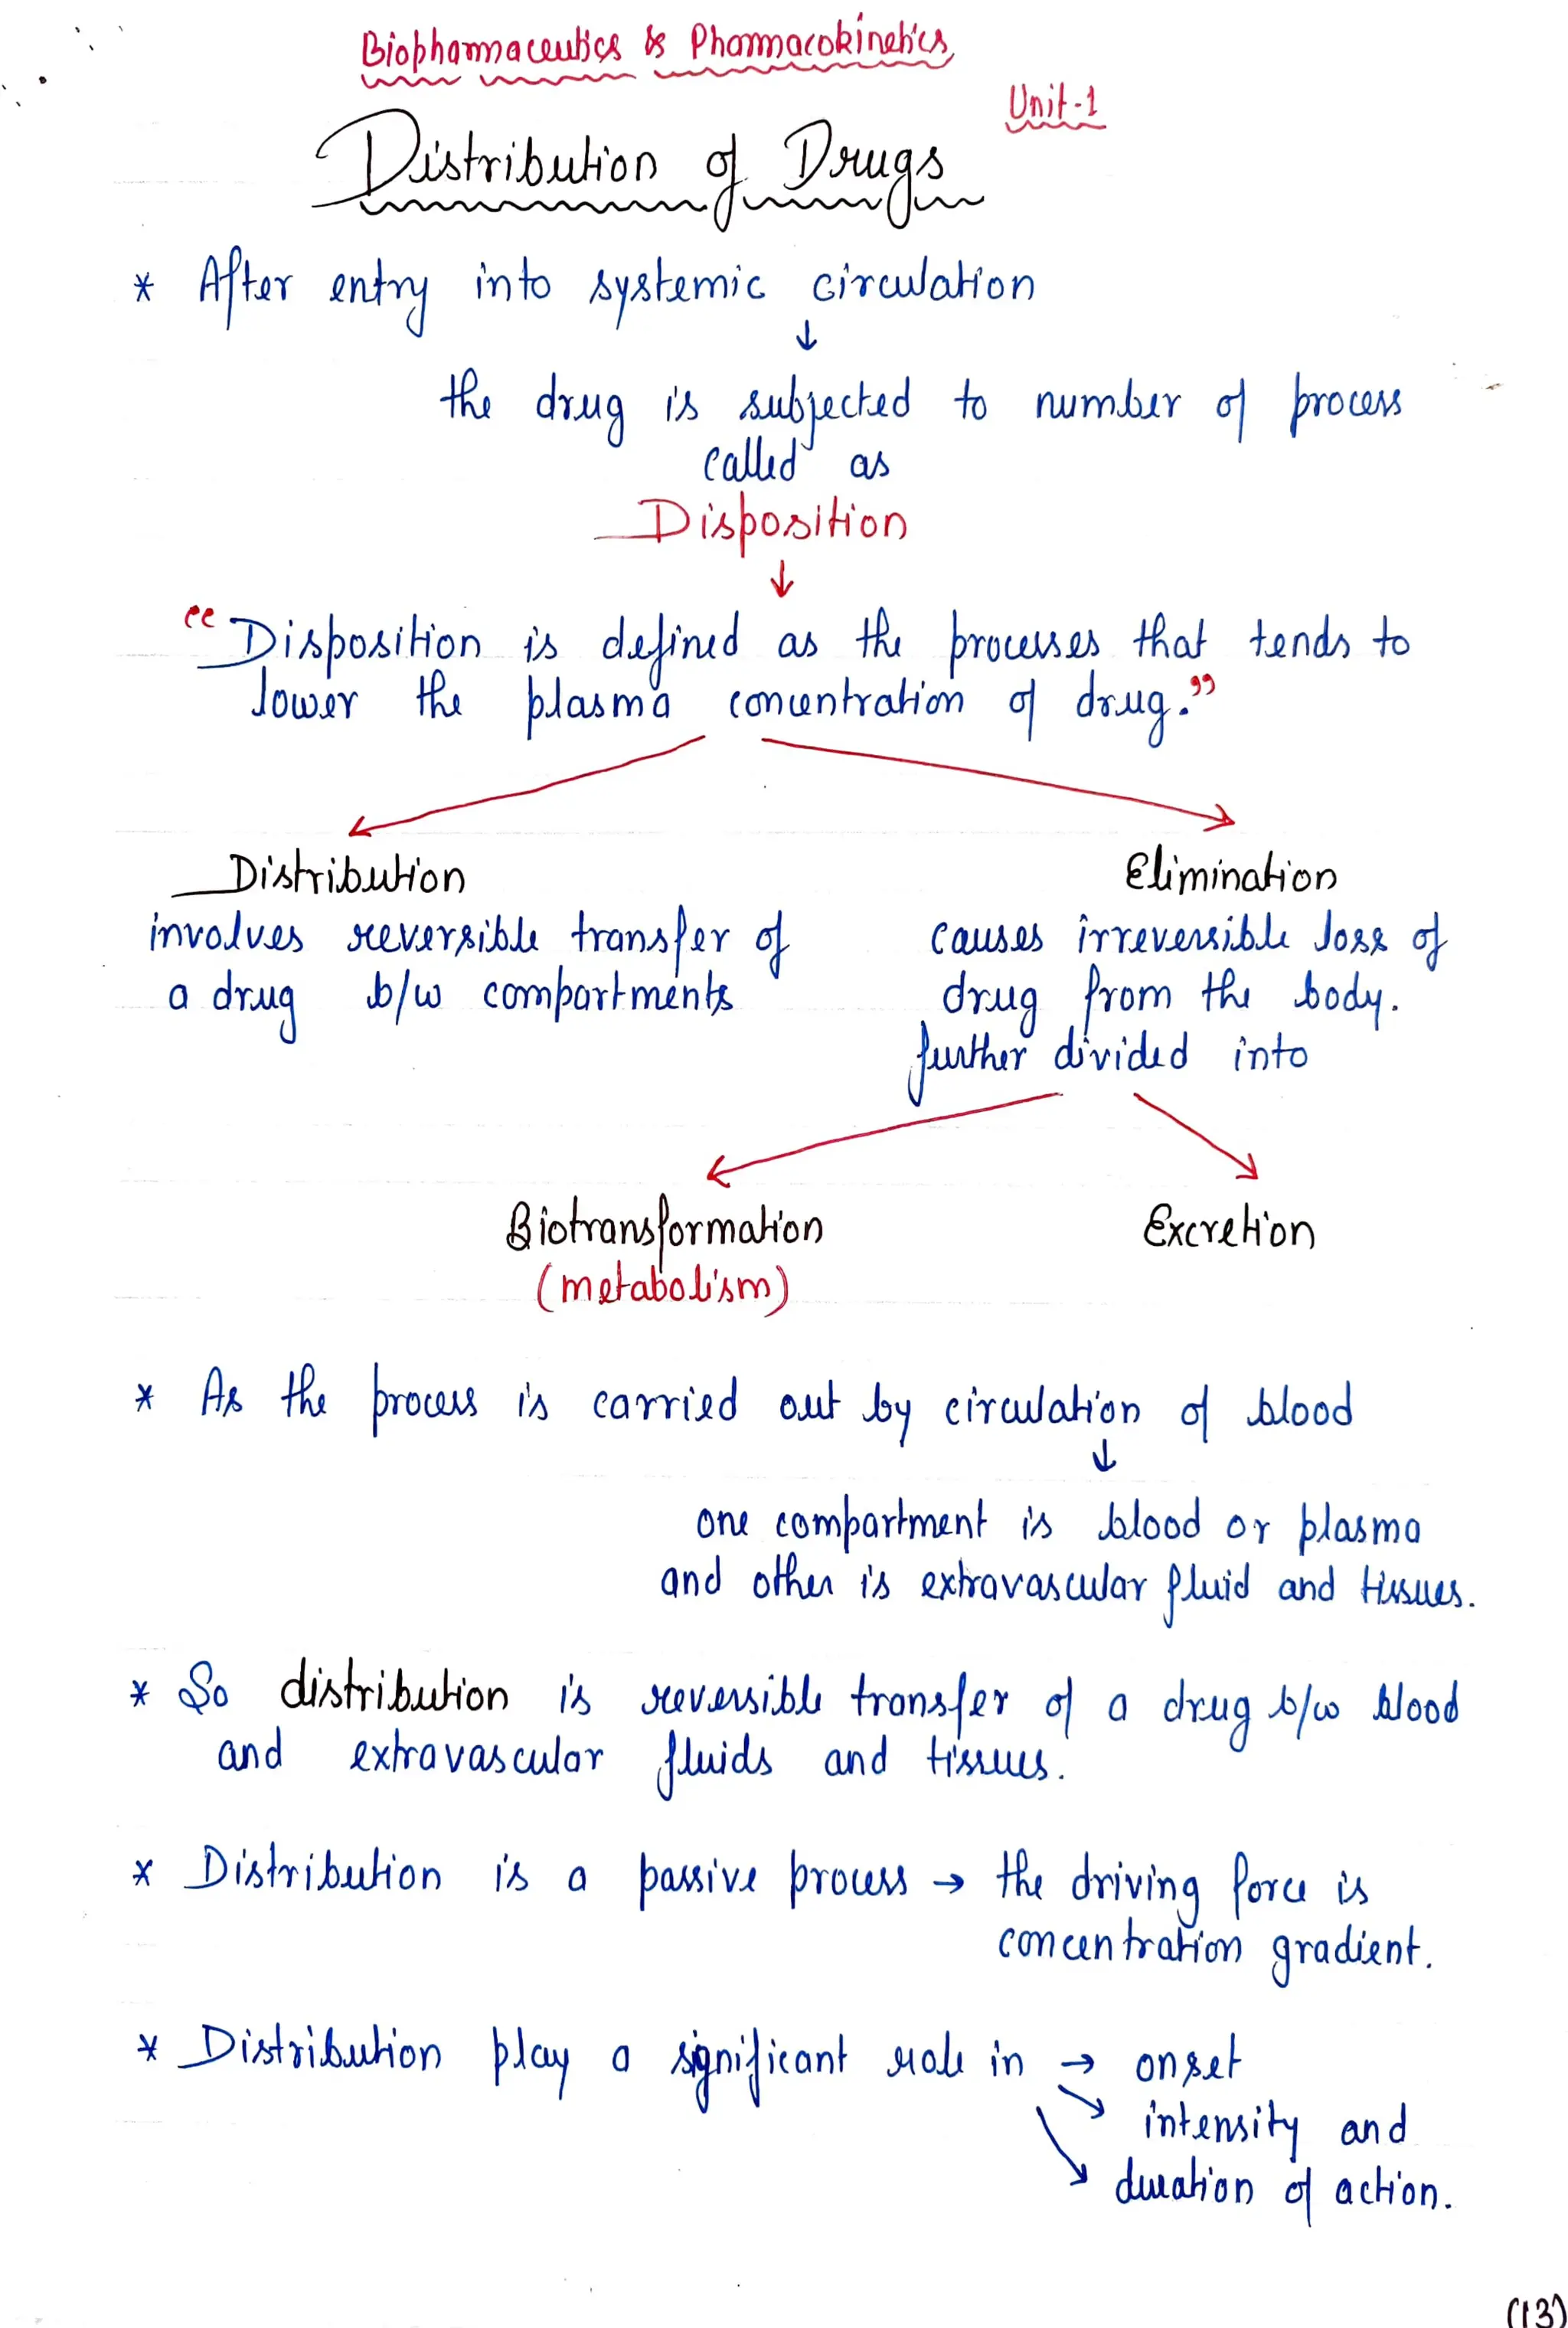 Biopharmaceutics & Pharmacokinetics
Unit-1
Distribution of Drugs
* After entry into systemic circulation
↓
the drug is subjected to number of process
called as
Disposition
↓
“Disposition is defined as the processes that tends to
lower the plasma concentration of drug.”
Distribution
involves reversible transfer of
a drug b/w compartments
Elimination
causes irreversible loss of
drug from the body.
further divided into
Biotransformation
(metabolism)
Excretion
* As the process is carried out by circulation of blood
↓
one compartment is blood or plasma
and other is extravascular fluid and tissues.
* So distribution is reversible transfer of a drug b/w blood
and extravascular fluids and tissues.
* Distribution is a passive process → the driving force is
concentration gradient.
* Distribution play a significant role in → onset
intensity and
duration of action.
(13)